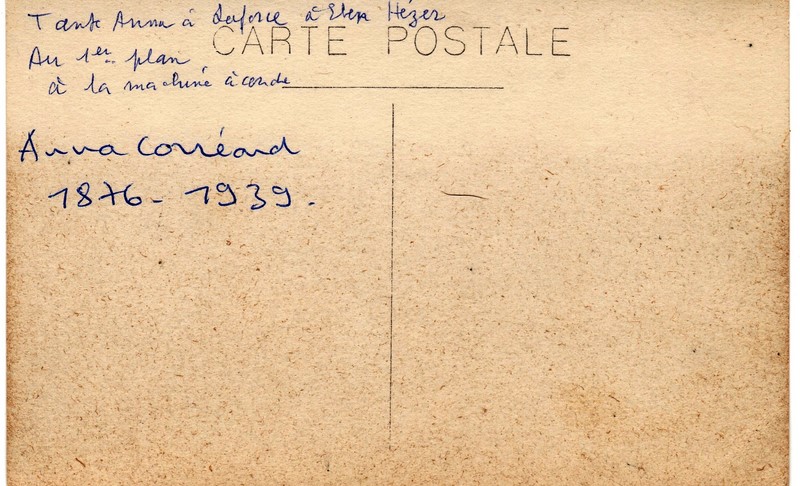 Tante Anna à Laforce à Eben Hézer
CARTE POSTALE
Au 1er plan
à la machine à coudre
Anna Corréard
1876 - 1939.